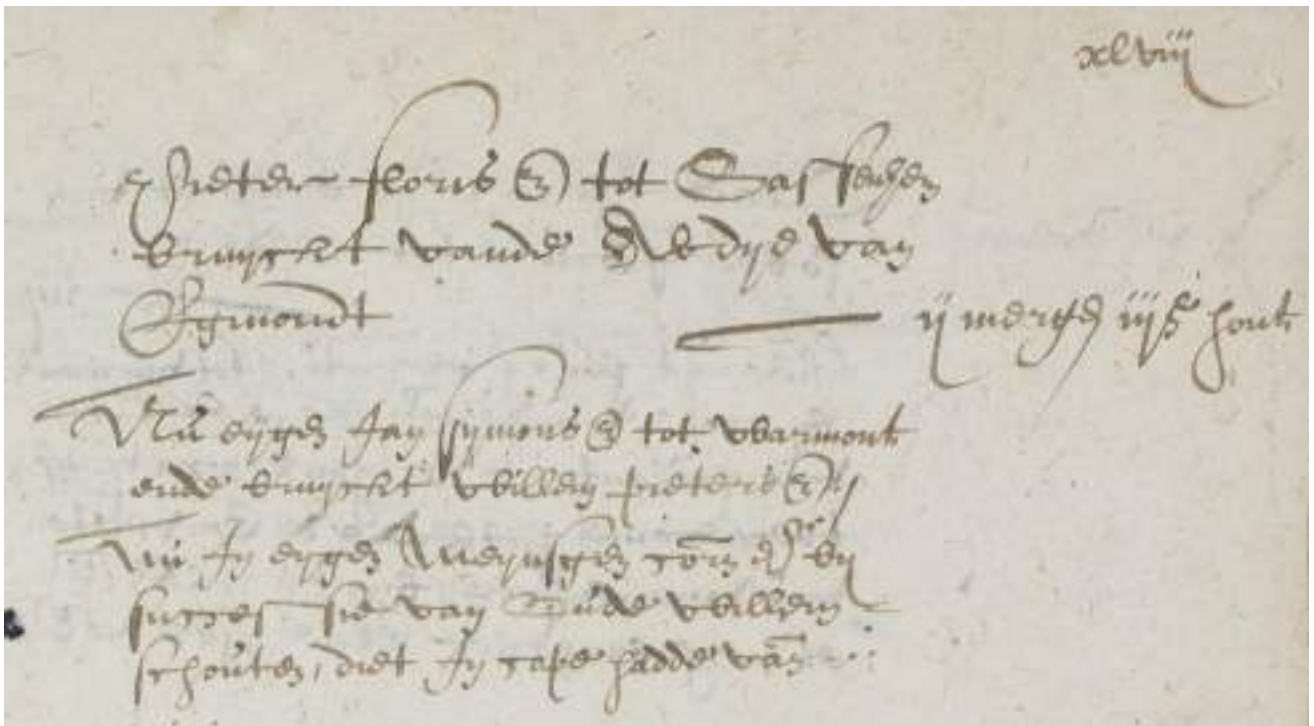 xlviii
Pieter floris z tot Sassenhem
bruyckt vande Abdye van
Egmondt ij mergen iijc hont
Nu eygen Jan symons z tot Warmont
ende bruyckt willem pieters z
Nu In eygen corn dr by
successie van Oude willem
schouten, diet In cope hadde van